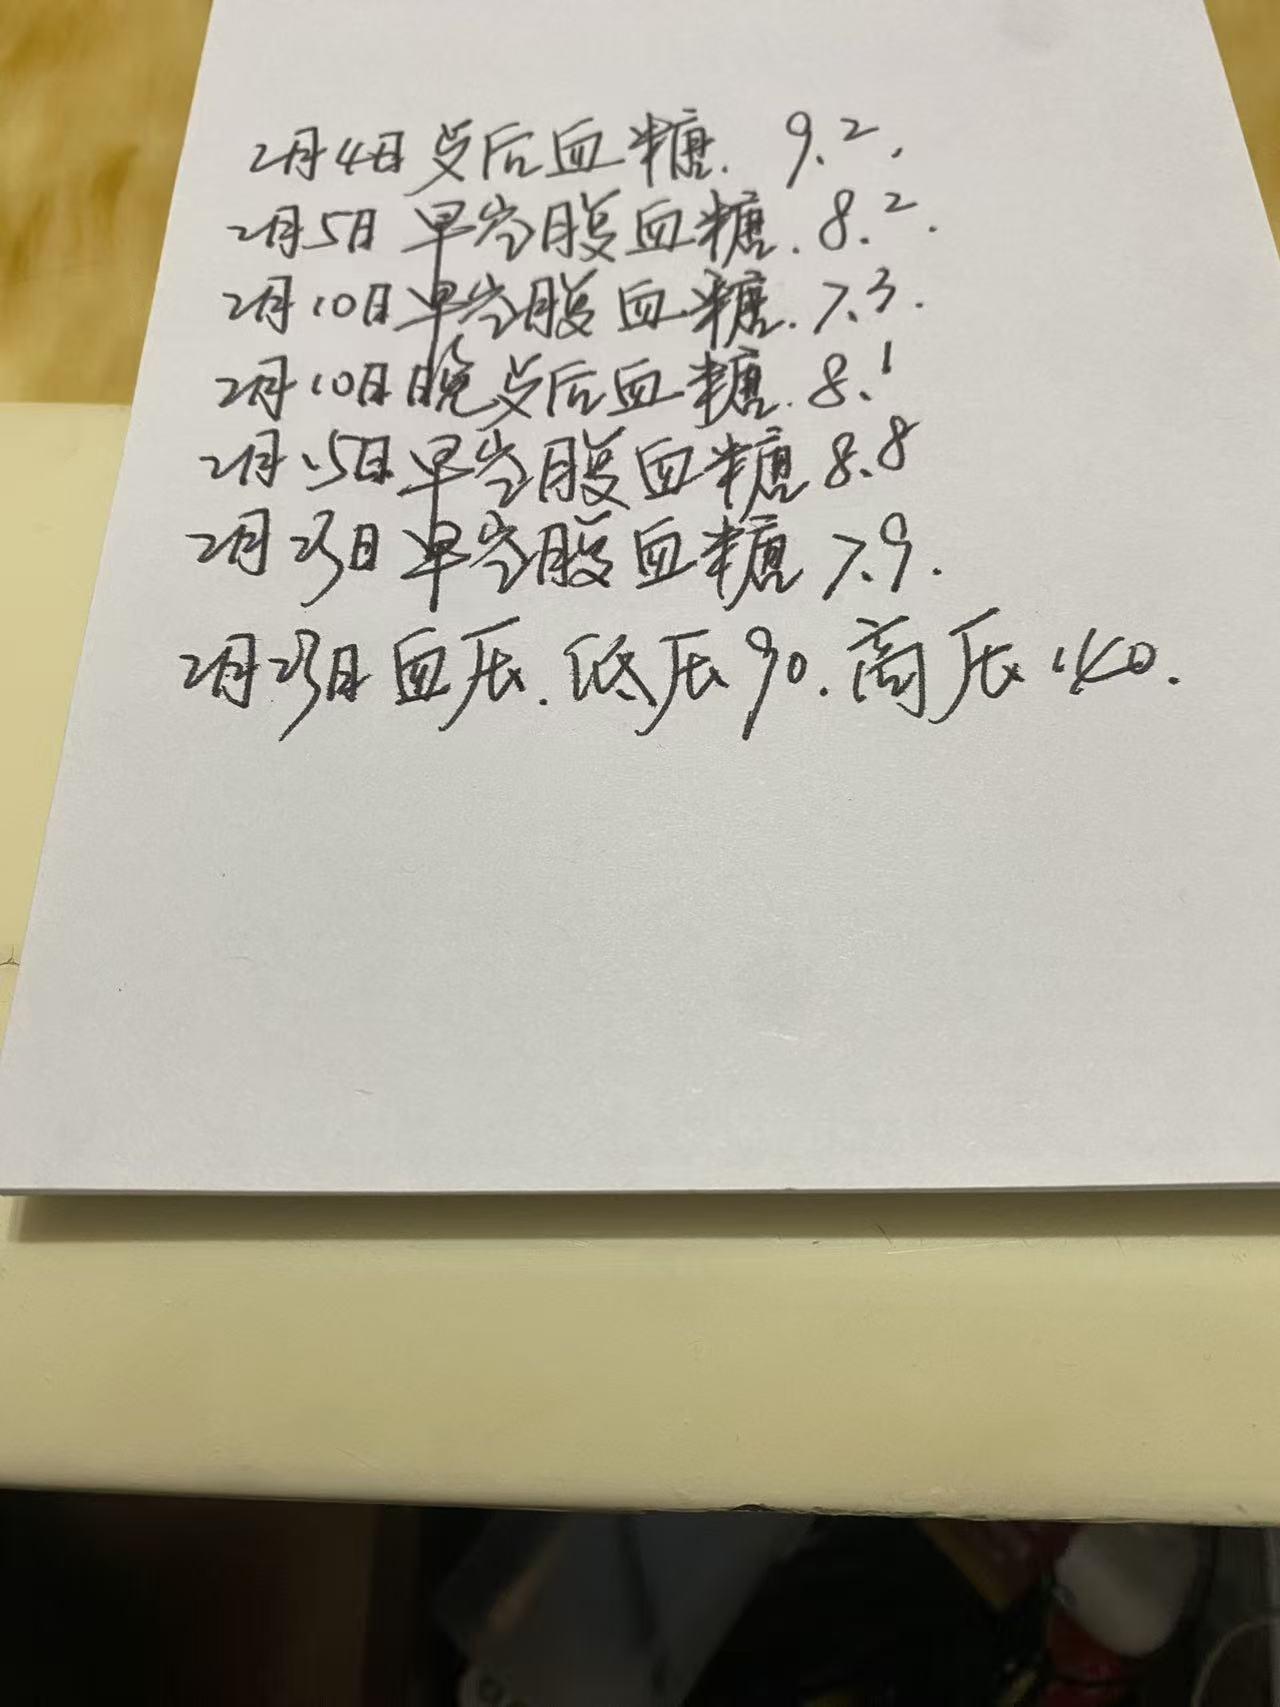 2月4日歺后血糖. 9.2.
2月5日早空腹血糖. 8.2.
2月10日早空腹血糖. 7.3.
2月10日晚歺后血糖. 8.1
2月15日早空腹血糖 8.8
2月23日早空腹血糖 7.9.
2月23日血压. 低压90. 高压140.